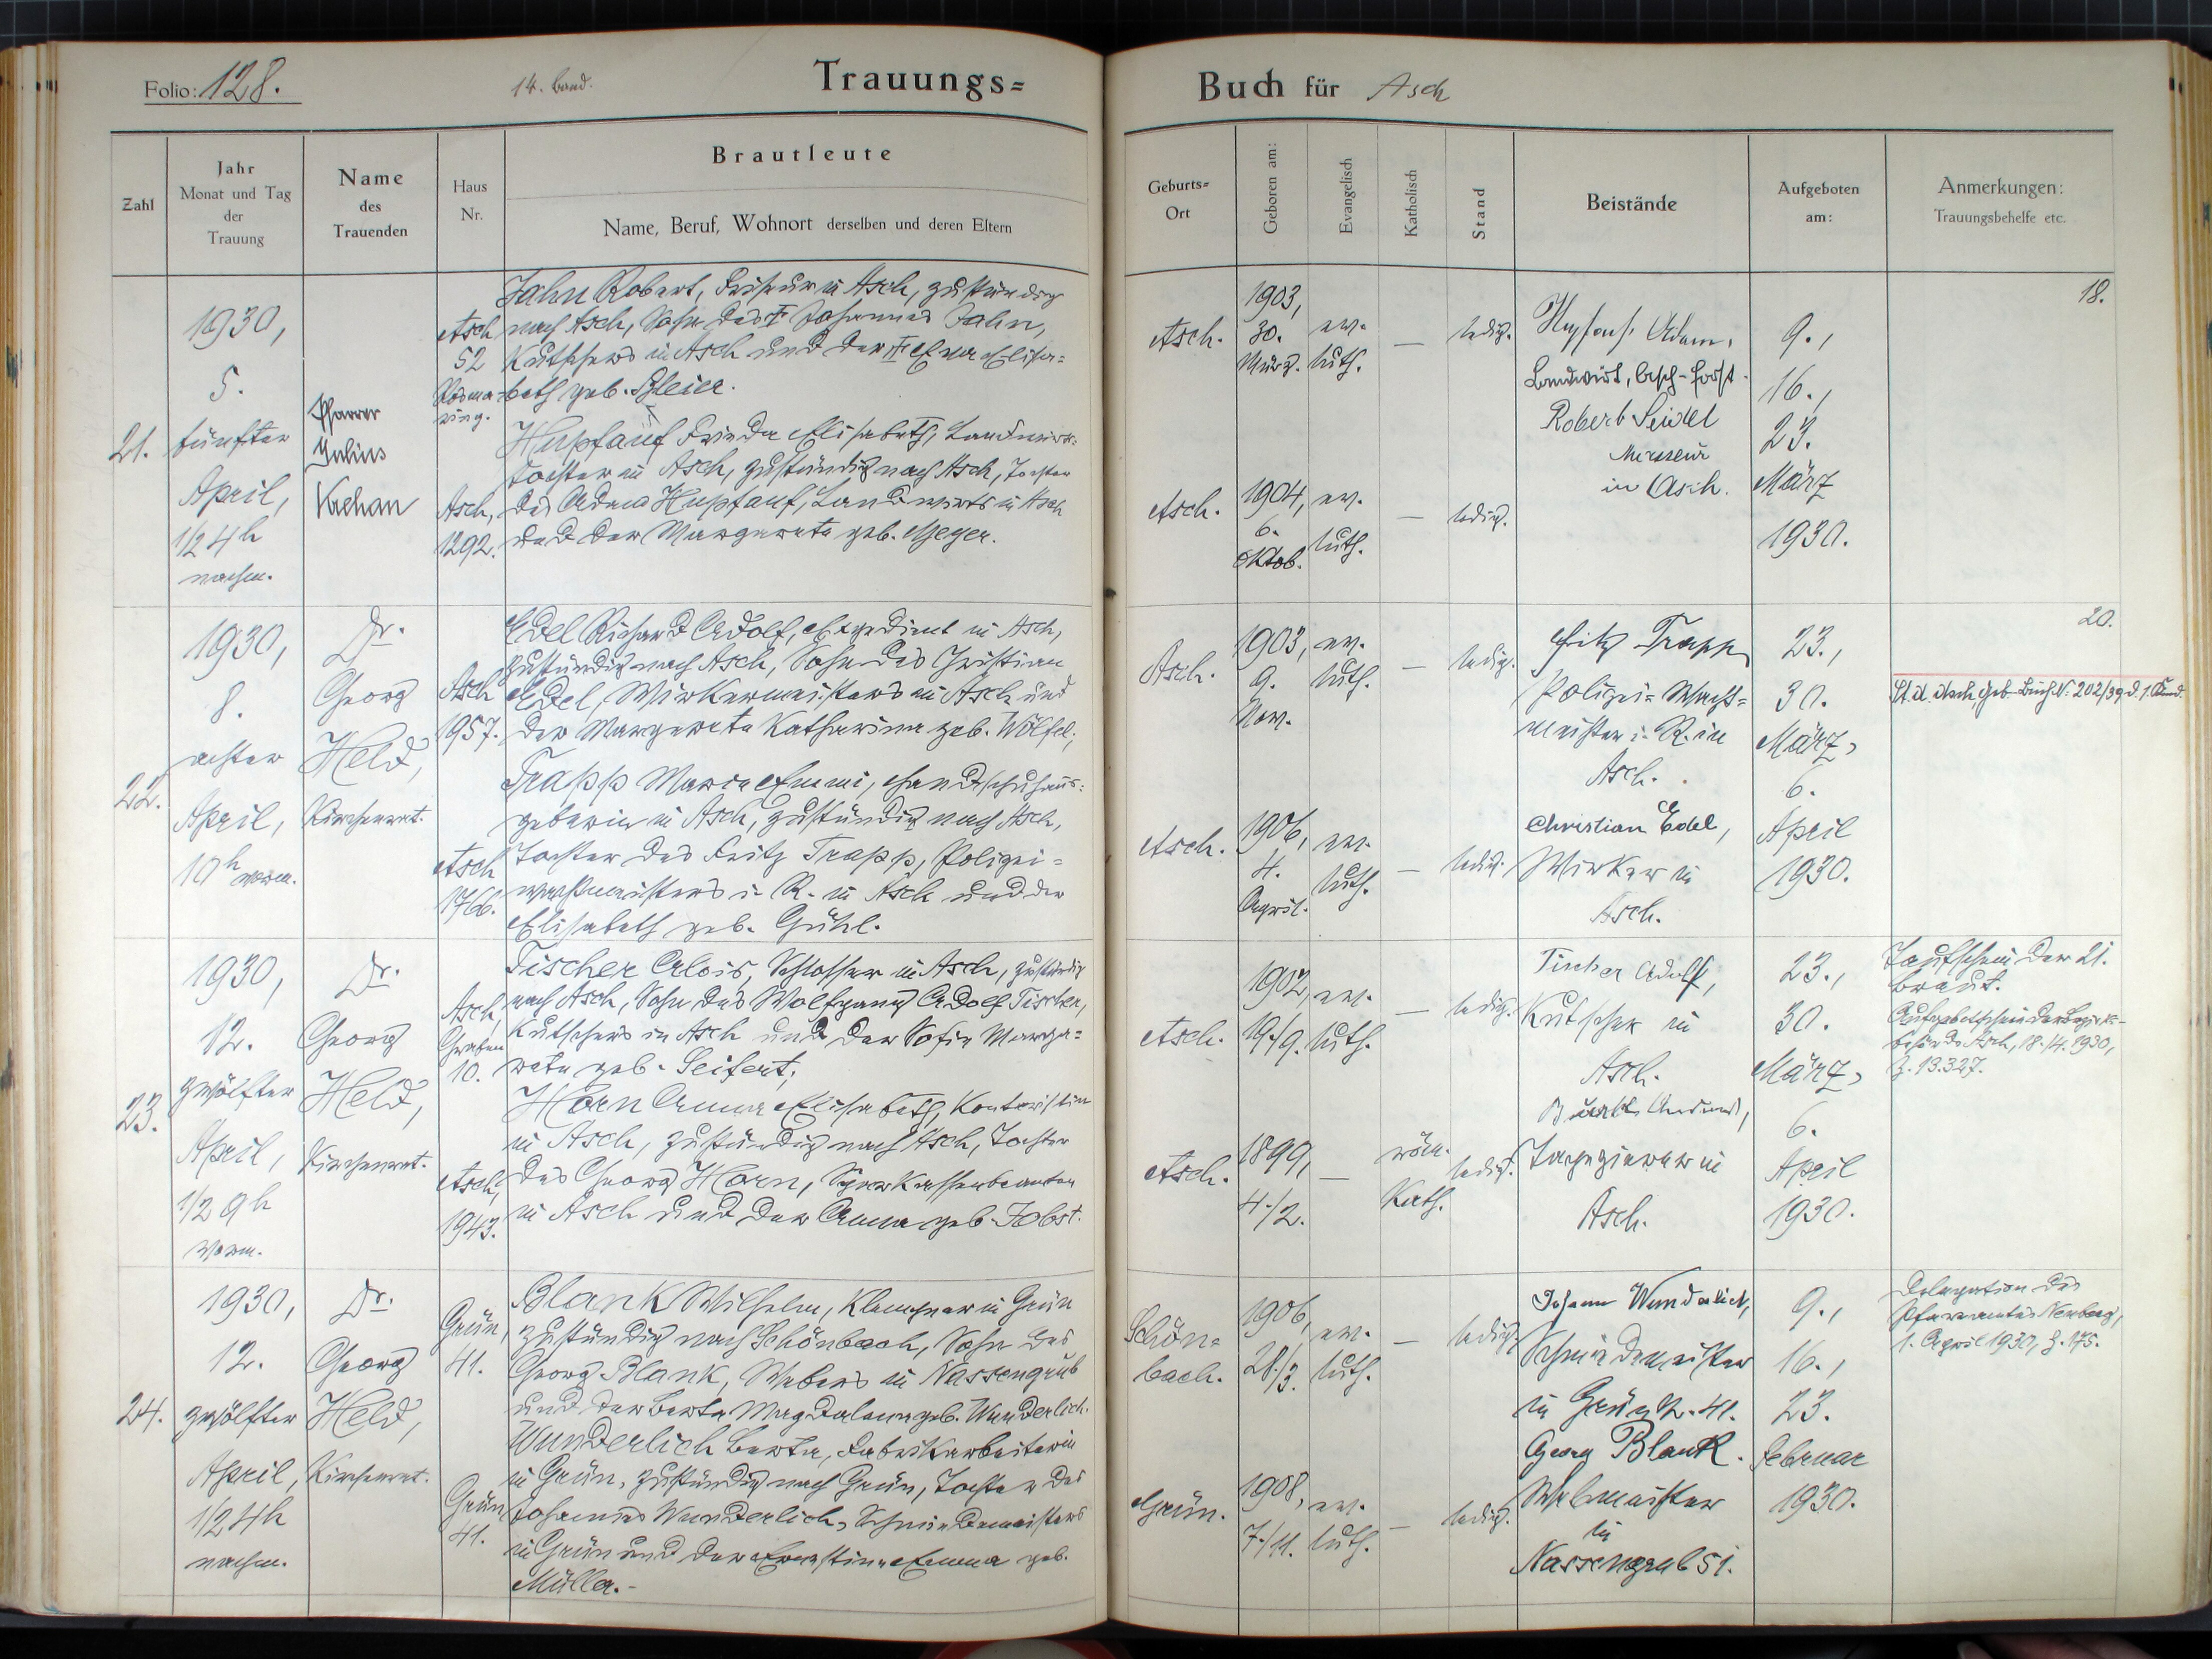 Folio: 128.
14. Band.
Trauungs=
Buch für Asch
Zahl
Jahr
Monat und Tag
der
Trauung
Name
des
Trauenden
Haus
Nr.
Brautleute
Name, Beruf, Wohnort derselben und deren Eltern
Geburts=
Ort
Geboren am:
Evangelisch
Katholisch
Stand
Beistände
Aufgeboten
am:
Anmerkungen:
Trauungsbehelfe etc.
21.
1930,
5.
fünfter
April,
1/2 4h
nachm.
Pfarrer
Julius
Asch
52
Jahn Robert, Friseur in Asch, zuständig
nach Asch, Sohn des Johannes Jahn,
Kutschers in Asch und der Eva Elisa=
beth geb. Bleier.
Asch,
1292.
Hupfauf Frieda Elisabeth, Landwirts=
tochter in Asch, zuständig nach Asch, Tochter
des Adam Hupfauf, Landwirts in Asch
und der Margareta geb. Geyer.
Asch.
1903,
30.
März.
ev.
luth.
—
ledig.
Asch.
1904,
6.
Oktob.
ev.
luth.
—
ledig.
Hupfauf Adam,
Landwirt, Asch-Forst
Robert Seidel
Masseur
in Asch.
9.,
16.,
23.
März
1930.
18.
22.
1930,
8.
achter
April,
10h vorm.
Dr.
Georg
Held,
Kirchenrat.
Asch
1957.
Edel Richard Adolf, Expedient in Asch,
zuständig nach Asch, Sohn des Christian
Edel, Wirkermeisters in Asch und
der Margareta Katharina geb. Wölfel;
Asch
1766.
Trapp Maria Emmi, Handschuhaus=
geberin in Asch, zuständig nach Asch,
Tochter des Fritz Trapp, Polizei=
wachtmeisters i. R. in Asch und der
Elisabeth geb. Gühl.
Asch.
1903,
9.
Nov.
ev.
luth.
—
ledig.
Asch.
1906,
4.
April.
ev.
luth.
—
ledig.
Fritz Trapp
Polizei=Wacht=
meister i. R. in
Asch.
Christian Edel,
Wirker in
Asch.
23.,
30.
März,
6.
April
1930.
20.
St. A. Asch, Geb-Buch Nr. 202/39 d. 1. Kind.
23.
1930,
12.
zwölfter
April,
1/2 9h
vorm.
Dr.
Georg
Held,
Kirchenrat.
Asch,
Graben
10.
Fischer Alois, Schlosser in Asch, zuständig
nach Asch, Sohn des Wolfgang Adolf Fischer,
Kutschers in Asch und der Sofie Marga=
reta geb. Seifert;
Asch,
1943.
Horn Anna Elisabeth, Kontoristin
in Asch, zuständig nach Asch, Tochter
des Georg Horn, Sparkassenbeamten
in Asch und der Anna geb. Jobst.
Asch.
1902,
19./9.
ev.
luth.
—
ledig.
Asch.
1899,
4./2.
—
röm.
Kath.
ledig.
Fischer Adolf,
Kutscher in
Asch.
Tapezierer in
Asch.
23.,
30.
März,
6.
April
1930.
Taufschein der
Braut.
21.
Aufgebotschein der Bezirks=
behörde Asch, 18./4. 1930,
Z. 13.327.
24.
1930,
12.
zwölfter
April,
1/2 4h
nachm.
Dr.
Georg
Held,
Kirchenrat.
Grün,
41.
Blank Wilhelm, Klempner in Grün
zuständig nach Schönbach, Sohn des
Georg Blank, Webers in Nassengrub
und der Berta Magdalena geb. Wunderlich.
Grün
41.
Wunderlich Berta, Fabrikarbeiterin
in Grün, zuständig nach Grün, Tochter des
Johannes Wunderlich, Schmiedemeisters
in Grün und der Ernestine Emma geb.
Müller.-
Schön=
bach.
1906,
28./3.
ev.
luth.
—
ledig.
Grün.
1908,
7./11.
ev.
luth.
—
ledig.
Johann Wunderlich,
Schmiedemeister
in Grün N. 41.
Georg Blank.
Webmeister
in
Nassengrub 51.
9.,
16.,
23.
Februar
1930.
Delegation des
Pfarramtes Neuberg,
1. April 1930, Z. 175.